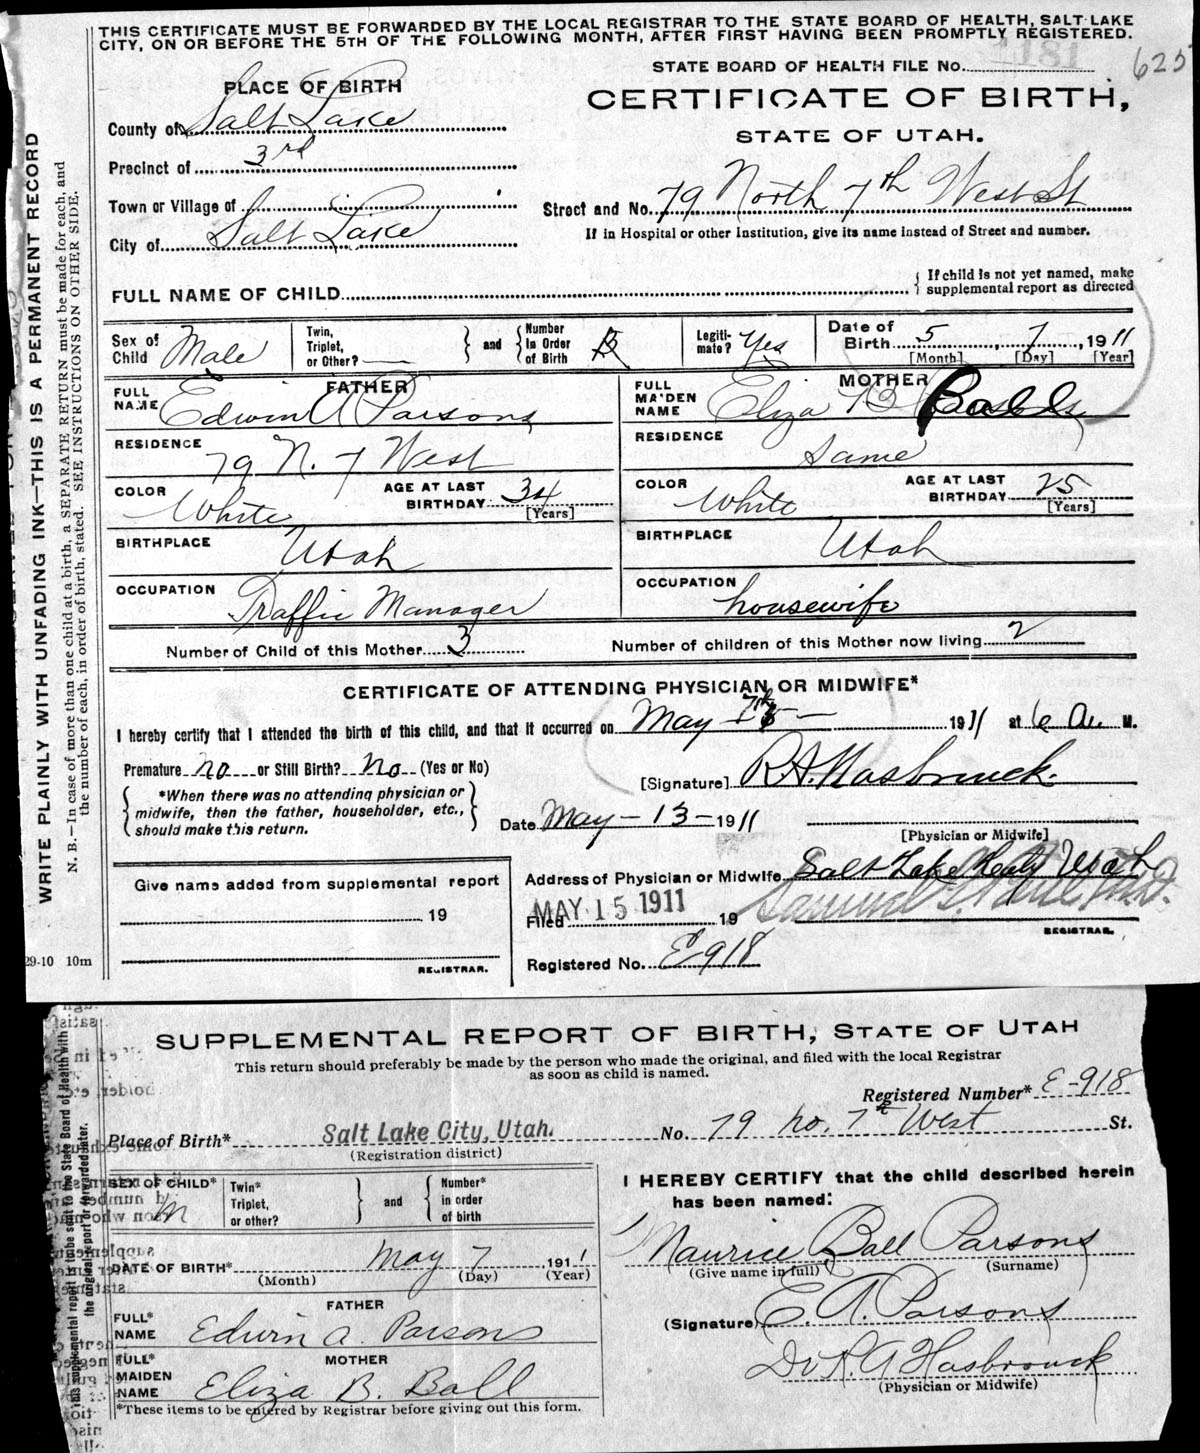 THIS CERTIFICATE MUST BE FORWARDED BY THE LOCAL REGISTRAR TO THE STATE BOARD OF HEALTH, SALT LAKE
CITY, ON OR BEFORE THE 5TH OF THE FOLLOWING MONTH, AFTER FIRST HAVING BEEN PROMPTLY REGISTERED.
STATE BOARD OF HEALTH FILE No. 1181 625
PLACE OF BIRTH
CERTIFICATE OF BIRTH,
STATE OF UTAH.
County of Salt Lake
Precinct of 3rd
Town or Village of
Street and No. 79 North 7th West St
City of Salt Lake
If in Hospital or other Institution, give its name instead of Street and number.
FULL NAME OF CHILD
{ If child is not yet named, make
supplemental report as directed
Sex of Child Male
Twin, Triplet, or Other? —
and
Number In Order of Birth
Legiti-mate? Yes
Date of Birth 5, 7, 1911
[Month] [Day] [Year]
FATHER
FULL NAME Edwin A Parsons
MOTHER
FULL MAIDEN NAME Eliza B Ball
RESIDENCE 79 N. 7 West
RESIDENCE Same
COLOR White
AGE AT LAST BIRTHDAY 34 [Years]
COLOR White
AGE AT LAST BIRTHDAY 25 [Years]
BIRTHPLACE Utah
BIRTHPLACE Utah
OCCUPATION Traffic Manager
OCCUPATION housewife
Number of Child of this Mother 3
Number of children of this Mother now living 2
CERTIFICATE OF ATTENDING PHYSICIAN OR MIDWIFE*
I hereby certify that I attended the birth of this child, and that it occurred on May 7th — 1911 at 6 A. M.
Premature no or Still Birth? No (Yes or No)
[Signature] R. A. Hasbrouck.
{ *When there was no attending physician or
midwife, then the father, householder, etc.,
should make this return. }
Date May - 13 - 1911
[Physician or Midwife]
Give name added from supplemental report
19
REGISTRAR.
Address of Physician or Midwife Salt Lake Utah
Filed MAY 15 1911 19
REGISTRAR.
Registered No. E-918
29-10 10m
WRITE PLAINLY WITH UNFADING INK—THIS IS A PERMANENT RECORD
N. B.—In case of more than one child at a birth, a SEPARATE RETURN must be made for each, and
the number of each, in order of birth, stated. SEE INSTRUCTIONS ON OTHER SIDE.
SUPPLEMENTAL REPORT OF BIRTH, STATE OF UTAH
This return should preferably be made by the person who made the original, and filed with the local Registrar
as soon as child is named.
Registered Number* E-918
Place of Birth* Salt Lake City, Utah. No. 79 No. 7th West St.
(Registration district)
SEX OF CHILD* M
Twin* Triplet, or other?
and
Number* in order of birth
I HEREBY CERTIFY that the child described herein
has been named:
Maurice Ball Parsons
(Give name in full) (Surname)
DATE OF BIRTH* May 7, 1911
(Month) (Day) (Year)
FATHER
FULL* NAME Edwin A. Parsons
(Signature) E. A. Parsons
MOTHER
FULL* MAIDEN NAME Eliza B. Ball
Dr R. A Hasbrouck
(Physician or Midwife)
*These items to be entered by Registrar before giving out this form.
This supplemental report is to be sent to the State Board of Health with
the original report or forwarded later.